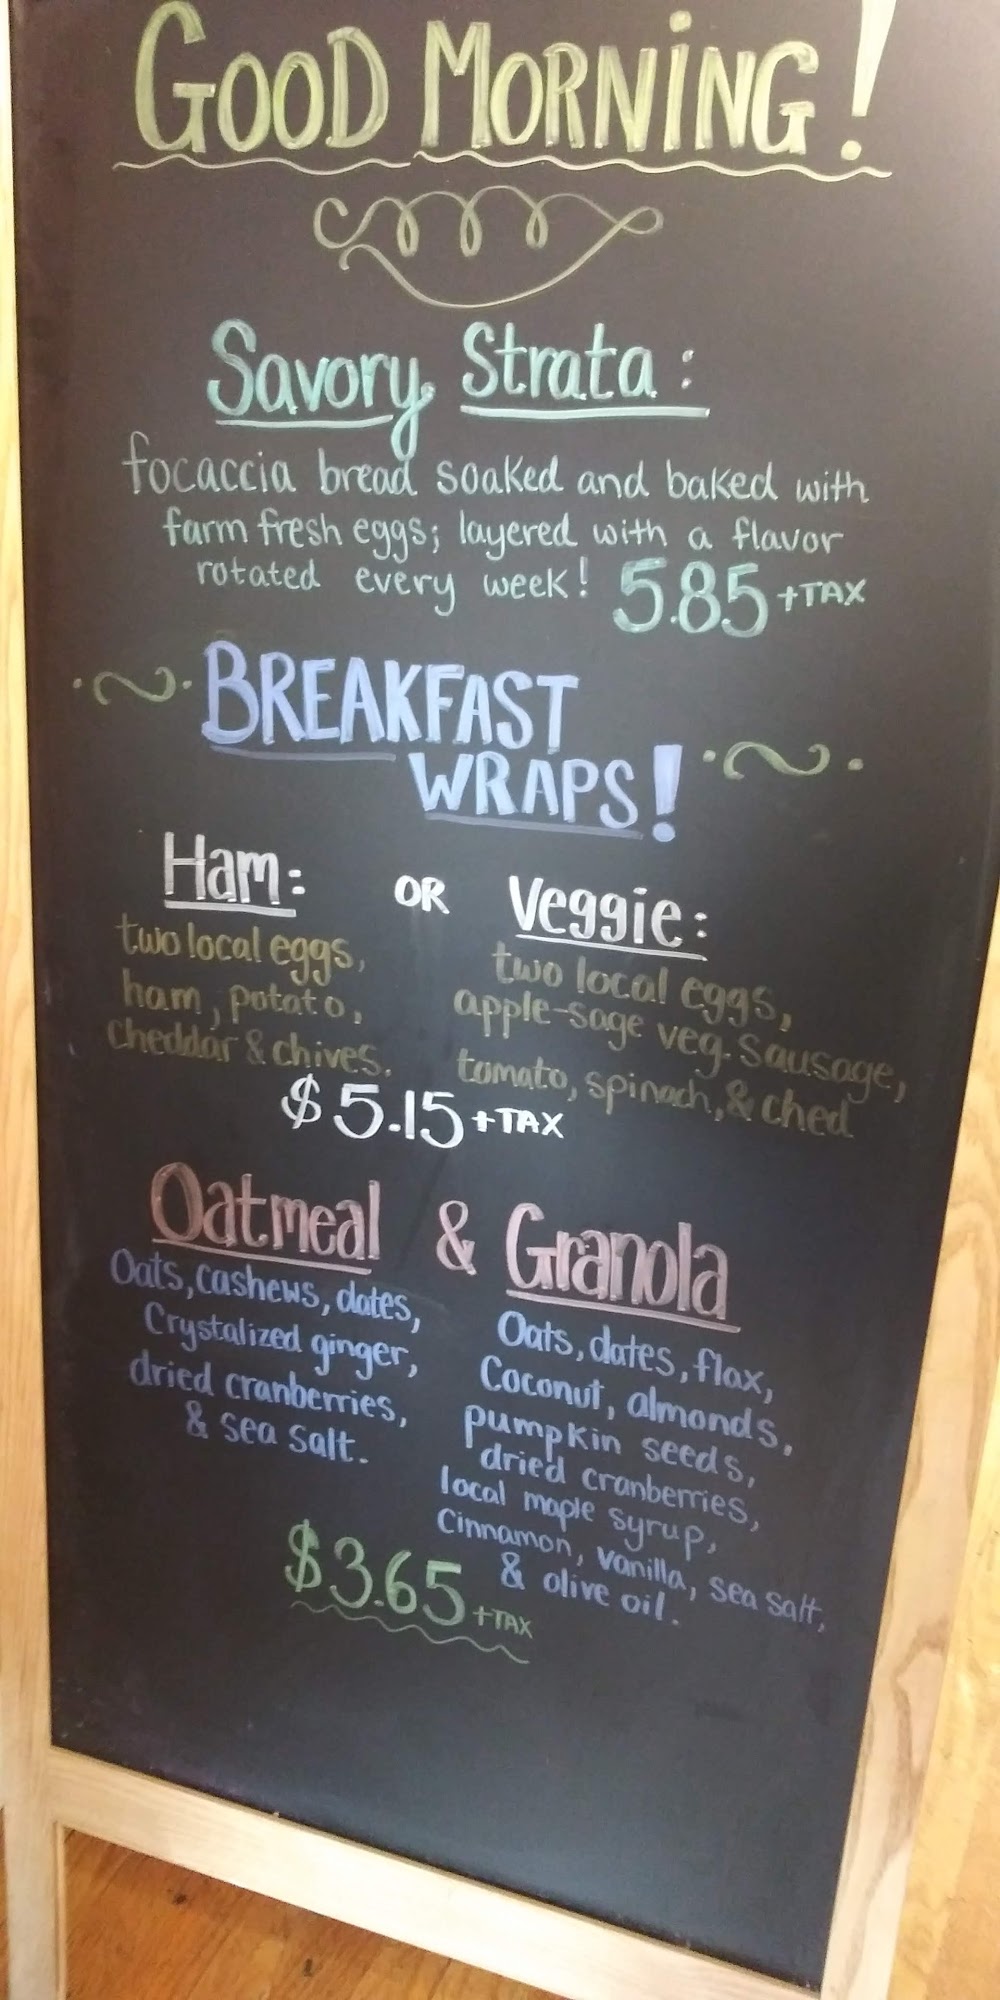 GOOD MORNING!
Savory Strata:
focaccia bread soaked and baked with
farm fresh eggs; layered with a flavor
rotated every week! 5.85 +TAX
BREAKFAST
WRAPS!
Ham: OR Veggie:
two local eggs,
ham, potato,
cheddar & chives.
two local eggs,
apple-sage veg. sausage,
tomato, spinach, & ched
$5.15 +TAX
Oatmeal & Granola
Oats, cashews, dates,
Crystalized ginger,
dried cranberries,
& sea salt.
Oats, dates, flax,
Coconut, almonds,
pumpkin seeds,
dried cranberries,
local maple syrup,
Cinnamon, vanilla, sea salt,
& olive oil.
$3.65 +TAX